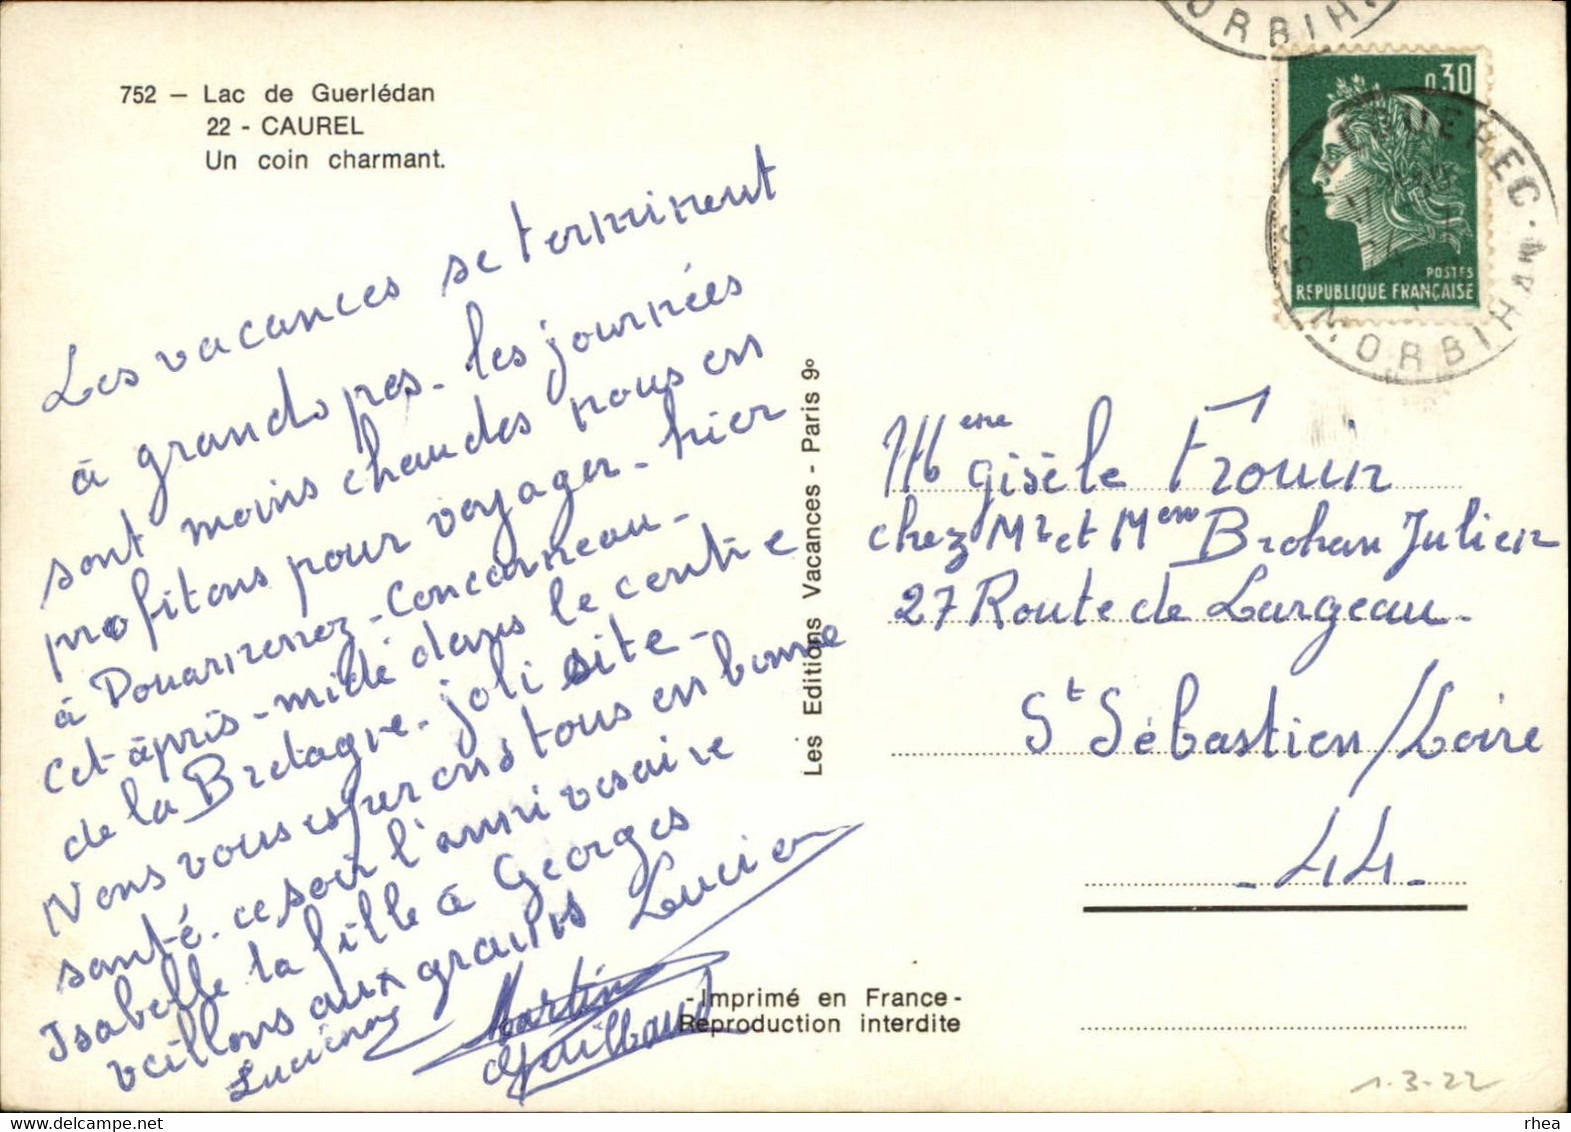 752 — Lac de Guerlédan
22 - CAUREL
Un coin charmant.
Les vacances se terminent
à grands pas - les journées
sont moins chaudes nous en
profitons pour voyager - hier
à Douarnenez - Concarneau -
Cet après-midi dans le centre
de la Bretagne - joli site -
Nous vous esperons tous en bonne
santé. ce soir l'annivesaire
Isabelle la fille à Georges
veillons aux grains Lucien
Lucienne Martin
Guilbaud
Les Editions Vacances - Paris 9º
- Imprimé en France -
Reproduction interdite
ORBIH.
0.30
POSTES
REPUBLIQUE FRANÇAISE
MORBIHAN
Mme Gisèle Frouin
chez Mr et Mme Brohan Julien
27 Route de Largeau -
St Sébastien / Loire
- 44 -
1-3-22
rhea